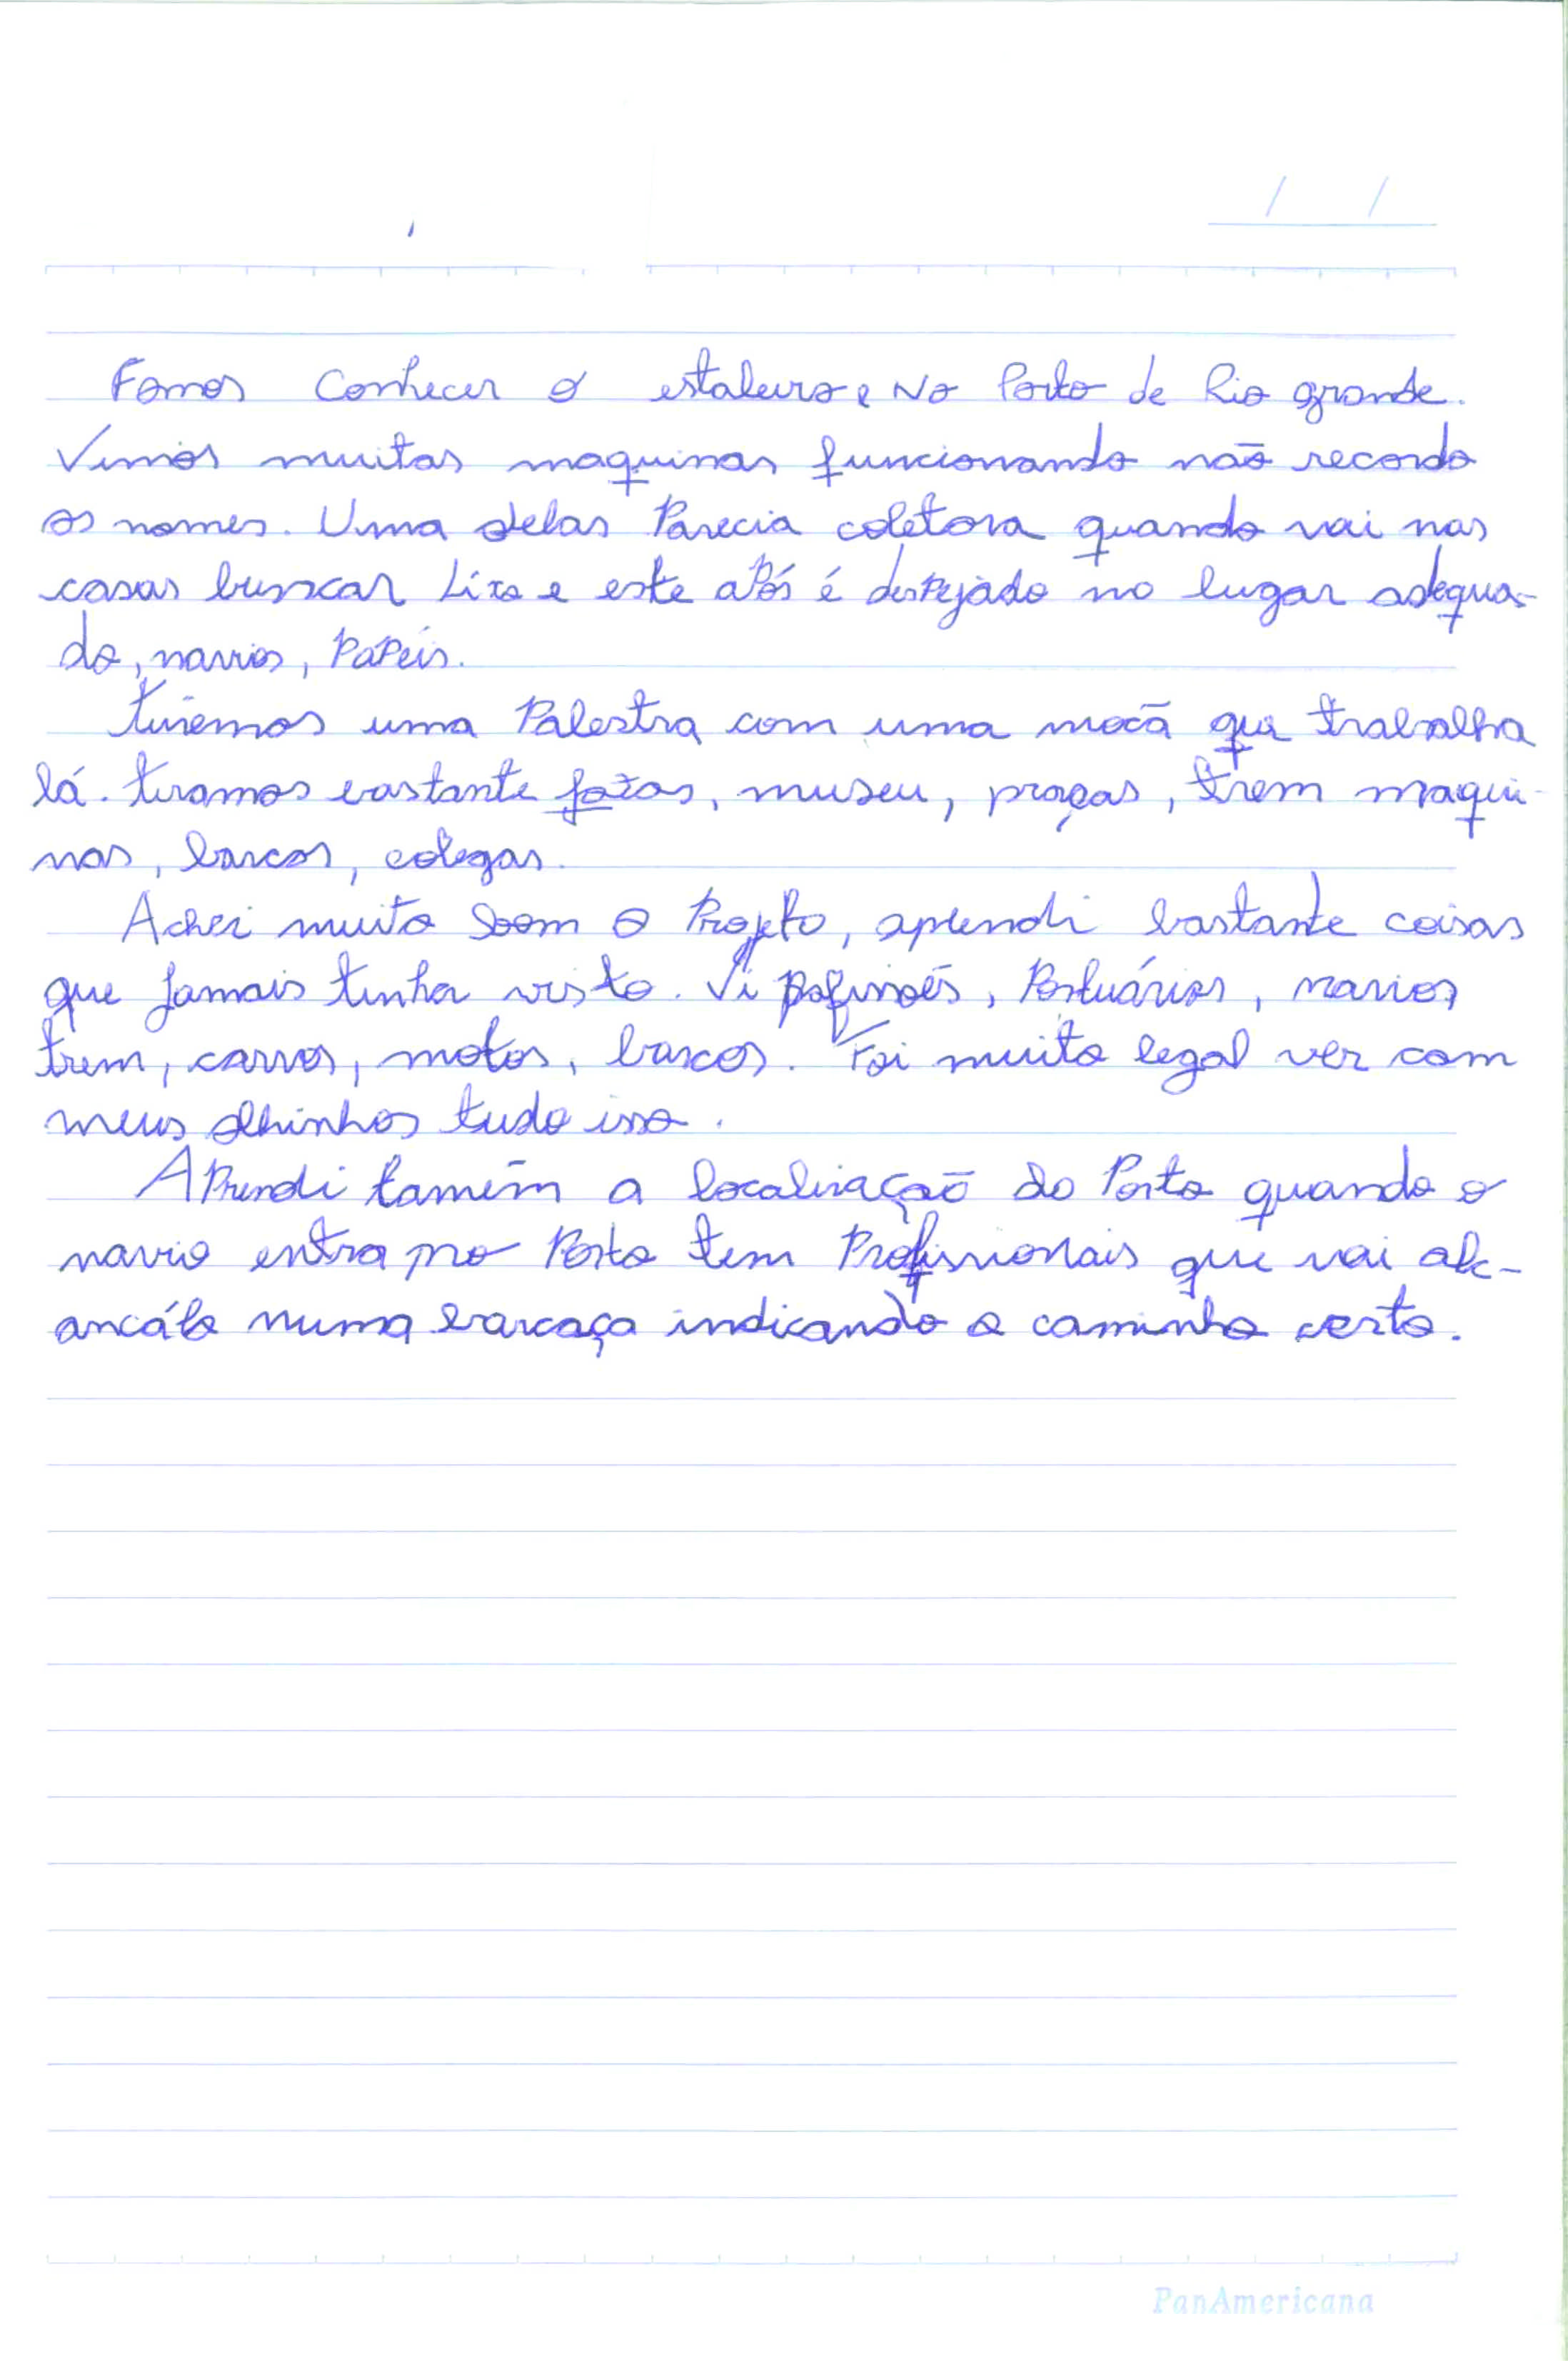 / /
Fomos Conhecer o estaleiro e No Porto de Rio grande.
Vimos muitas maquinas funcionando não recordo
os nomes. Uma delas Parecia coletora quando vai nas
casas buscar Lixo e este aPós é desPejado no lugar adequa-
do, navios, PaPéis.
tivemos uma Palestra com uma mocã que trabalha
lá. tiramos bastante fotos, museu, praças, trem maqui-
nas, barcos, colegas.
Achei muito bom o Projeto, aprendi bastante coisas
que Jamais tinha visto. Vi Portuários, navios
trem, carros, motos, barcos. Foi muito legal ver com
meus olhinhos tudo isso.
APrendi tamém a localização do Porto quando o
navio entra pro Porto tem Profissionais que vai alc-
ancálo numa barcaça indicando o caminho certo.
PanAmericana